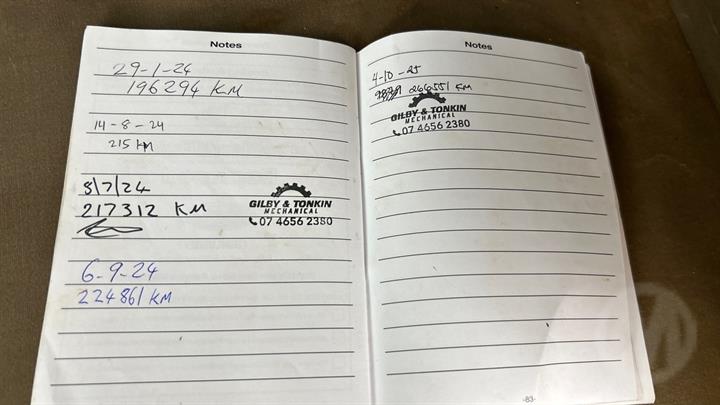 Notes
29-1-24
196294 KM
14-8-24
215 KM
8/7/24
217312 KM
GILBY & TONKIN
MECHANICAL
07 4656 2380
6-9-24
224861 KM
Notes
4-10-25
266551 KM
GILBY & TONKIN
MECHANICAL
07 4656 2380
-83-